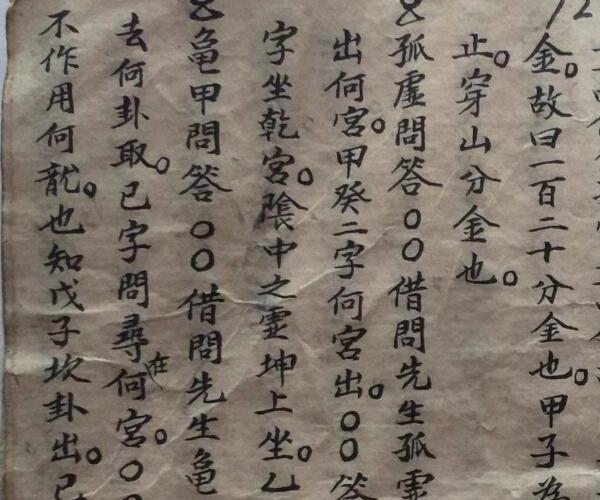 金。故曰一百二十分金也。甲子為
止。穿山分金也。
孤虛問答○○借問先生孤虛
出何宮。甲癸二字何宮出。○○答
字坐乾宮。陰中之霊坤上坐。乙
龜甲問答○○借問先生龜
去何卦取。已字問尋在何宮。○○
不作用何龍。也知戊子坎卦出。已